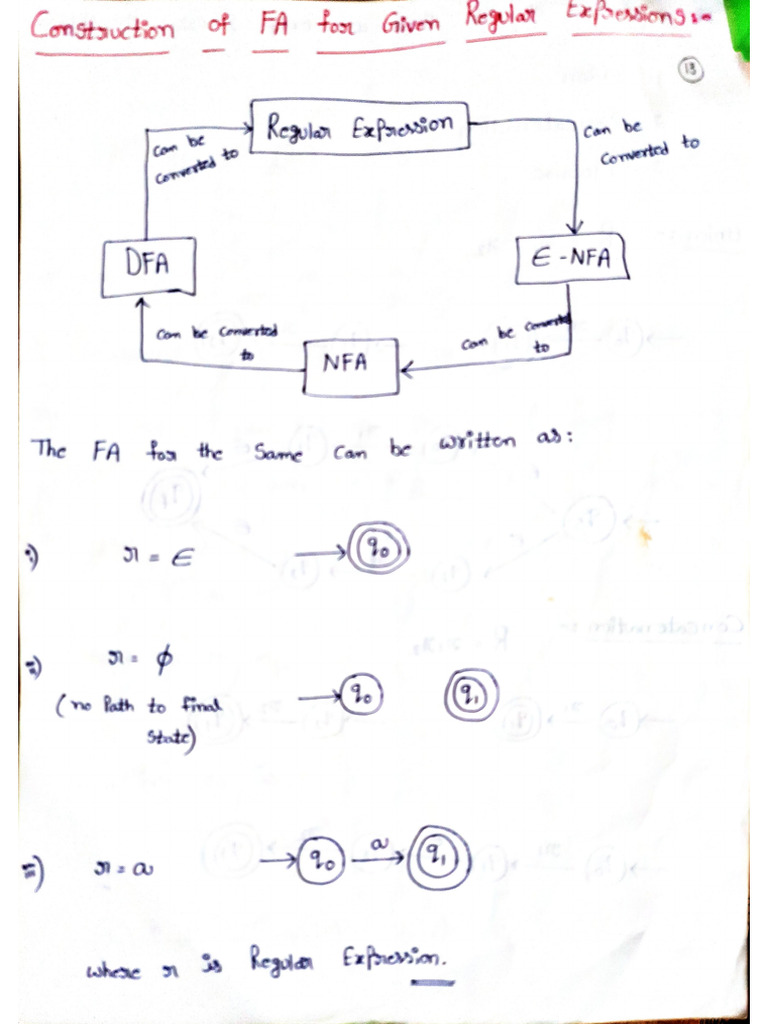 Construction of FA for Given Regular Expressions:-
13
Regular Expression
can be
converted to
can be
converted to
DFA
ϵ-NFA
can be converted
to
can be converted
to
NFA
The FA for the Same can be written as:
i) r = ϵ
q0
ii) r = ϕ
(no Path to final
State)
q0 q1
iii) r = a
q0 a q1
where r is Regular Expression.